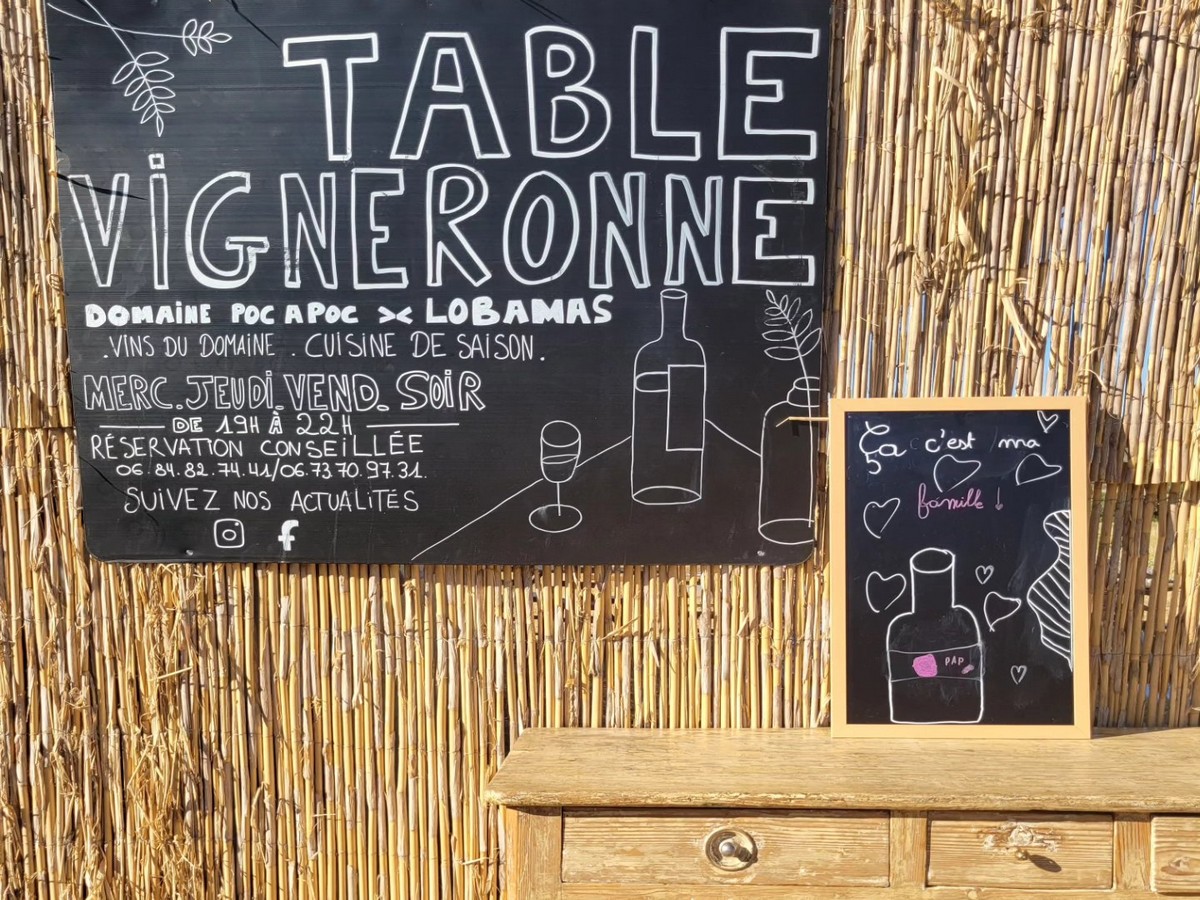 TABLE
VIGNERONNE
DOMAINE POC A POC >< LOBAMAS
.VINS DU DOMAINE . CUISINE DE SAISON.
MERC. JEUDI. VEND. SOIR
DE 19H À 22H
RÉSERVATION CONSEILLÉE
06.84.82.74.41/06.73.70.97.31.
SUIVEZ NOS ACTUALITÉS
Ça c'est ma
famille ↓
PAP